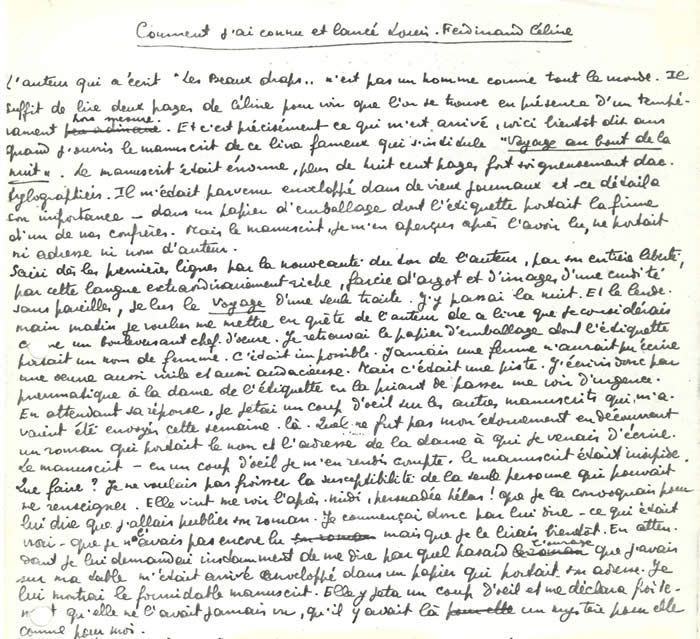 Comment j'ai connu et lancé Louis-Ferdinand Céline
L'auteur qui a écrit "Les Beaux draps.. n'est pas un homme comme tout le monde. Il
suffit de lire deux pages de Céline pour voir que l'on se trouve en présence d'un tempé-
rament hors mesure. Et c'est précisément ce qui m'est arrivé, voici bientôt dix ans
quand j'ouvris le manuscrit de ce livre fameux qui s'intitule "Voyage au bout de la
nuit". Le manuscrit était énorme, plus de huit cent pages fort soigneusement dac-
tylographiées. Il m'était parvenu enveloppé dans de vieux journaux et - ce détail a
son importance - dans un papier d'emballage dont l'étiquette portait la firme
d'un de nos confrères. Mais le manuscrit, je m'en aperçus après l'avoir lu, ne portait
ni adresse ni nom d'auteur.
Saisi dès les premières lignes par la nouveauté du ton de l'auteur, par son entière liberté,
par cette langue extraordinairement riche, farcie d'argot et d'images d'une crudité
sans pareilles, je lus le Voyage d'une seule traite. J'y passai la nuit. Et le lende-
main matin je voulus me mettre en quête de l'auteur de ce livre que je considérais
c ne un bouleversant chef-d'œuvre. Je retrouvai le papier d'emballage dont l'étiquette
portait un nom de femme. C'était impossible. Jamais une femme n'aurait pu écrire
une œuvre aussi virile et aussi audacieuse. Mais c'était une piste. J'écrivis donc par
pneumatique à la dame de l'étiquette en la priant de passer me voir d'urgence.
En attendant sa réponse, je jetai un coup d'œil sur les autres manuscrits qui m'a-
vaient été envoyés cette semaine-là. Quel ne fut pas mon étonnement en découvrant
un roman qui portait le nom et l'adresse de la dame à qui je venais d'écrire.
Le manuscrit - en un coup d'œil je m'en rendis compte - le manuscrit était insipide.
Que faire? Je ne voulais pas froisser la susceptibilité de la seule personne qui pouvait
me renseigner. Elle vint me voir l'après-midi, persuadée hélas! que je la convoquais pour
lui dire que j'allais publier son roman. Je commençai donc par lui dire - ce qui était
vrai - que je n'avais pas encore lu son roman mais que je le lirais bientôt. En atten-
dant je lui demandai instamment de me dire par quel hasard l'ouvrage que j'avais
sur ma table m'était arrivé enveloppé dans un papier qui portait son adresse. Je
lui montrai le formidable manuscrit. Elle y jeta un coup d'œil et me déclara froide-
m nt qu'elle ne l'avait jamais vu, qu'il y avait là pour elle un mystère pour elle
comme pour moi.